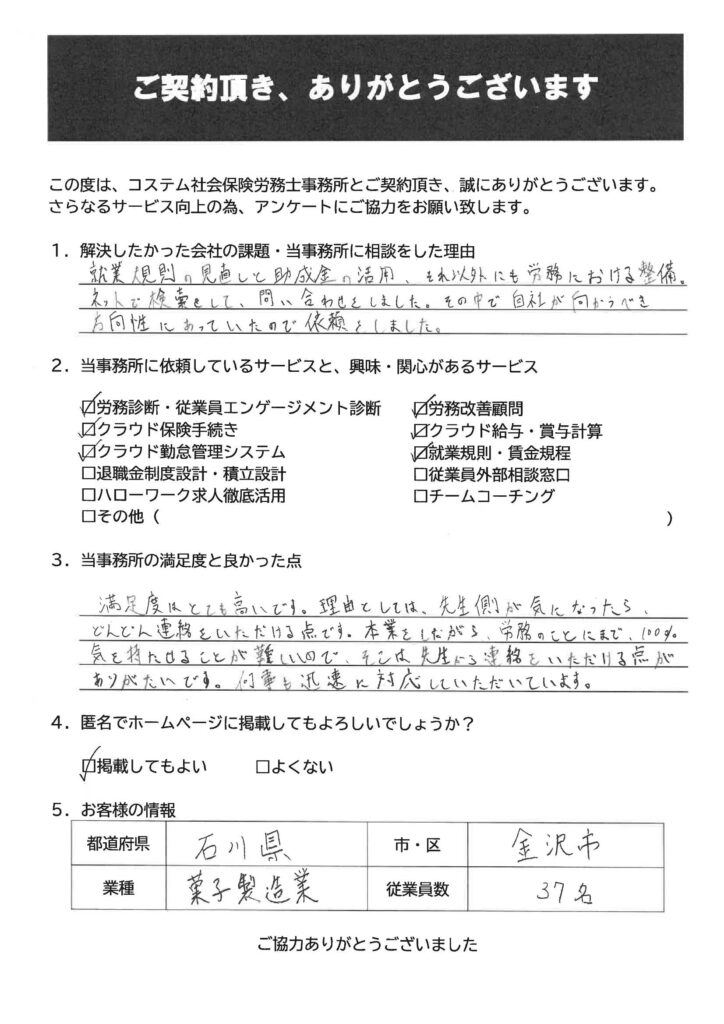 ご契約頂き、ありがとうございます
この度は、コステム社会保険労務士事務所とご契約頂き、誠にありがとうございます。
さらなるサービス向上の為、アンケートにご協力をお願い致します。
1．解決したかった会社の課題・当事務所に相談をした理由
就業規則の見直しと助成金の活用、それ以外にも労務における整備。
ネットで検索をして、問い合わせをしました。その中で自社が向かうべき
方向性にあっていたので依頼をしました。
2．当事務所に依頼しているサービスと、興味・関心があるサービス
☑労務診断・従業員エンゲージメント診断 ☑労務改善顧問
☑クラウド保険手続き ☑クラウド給与・賞与計算
☑クラウド勤怠管理システム ☑就業規則・賃金規程
□退職金制度設計・積立設計 □従業員外部相談窓口
□ハローワーク求人徹底活用 □チームコーチング
□その他（ ）
3．当事務所の満足度と良かった点
満足度はとても高いです。理由としては、先生側が気になったら、
どんどん連絡をいただける点です。本業をしながら、労務のことにまで、100%
気を持たせることが難しいので、そこは先生から連絡をいただける点が
ありがたいです。何事も迅速に対応していただいています。
4．匿名でホームページに掲載してもよろしいでしょうか？
☑掲載してもよい □よくない
5．お客様の情報
都道府県 石川県 市・区 金沢市
業種 菓子製造業 従業員数 37名
ご協力ありがとうございました